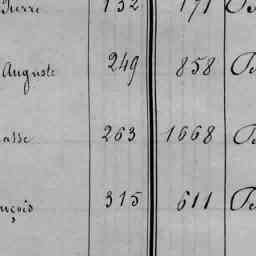 Pierre 132 171
Auguste 249 858
asse 263 1668
nçois 315 611